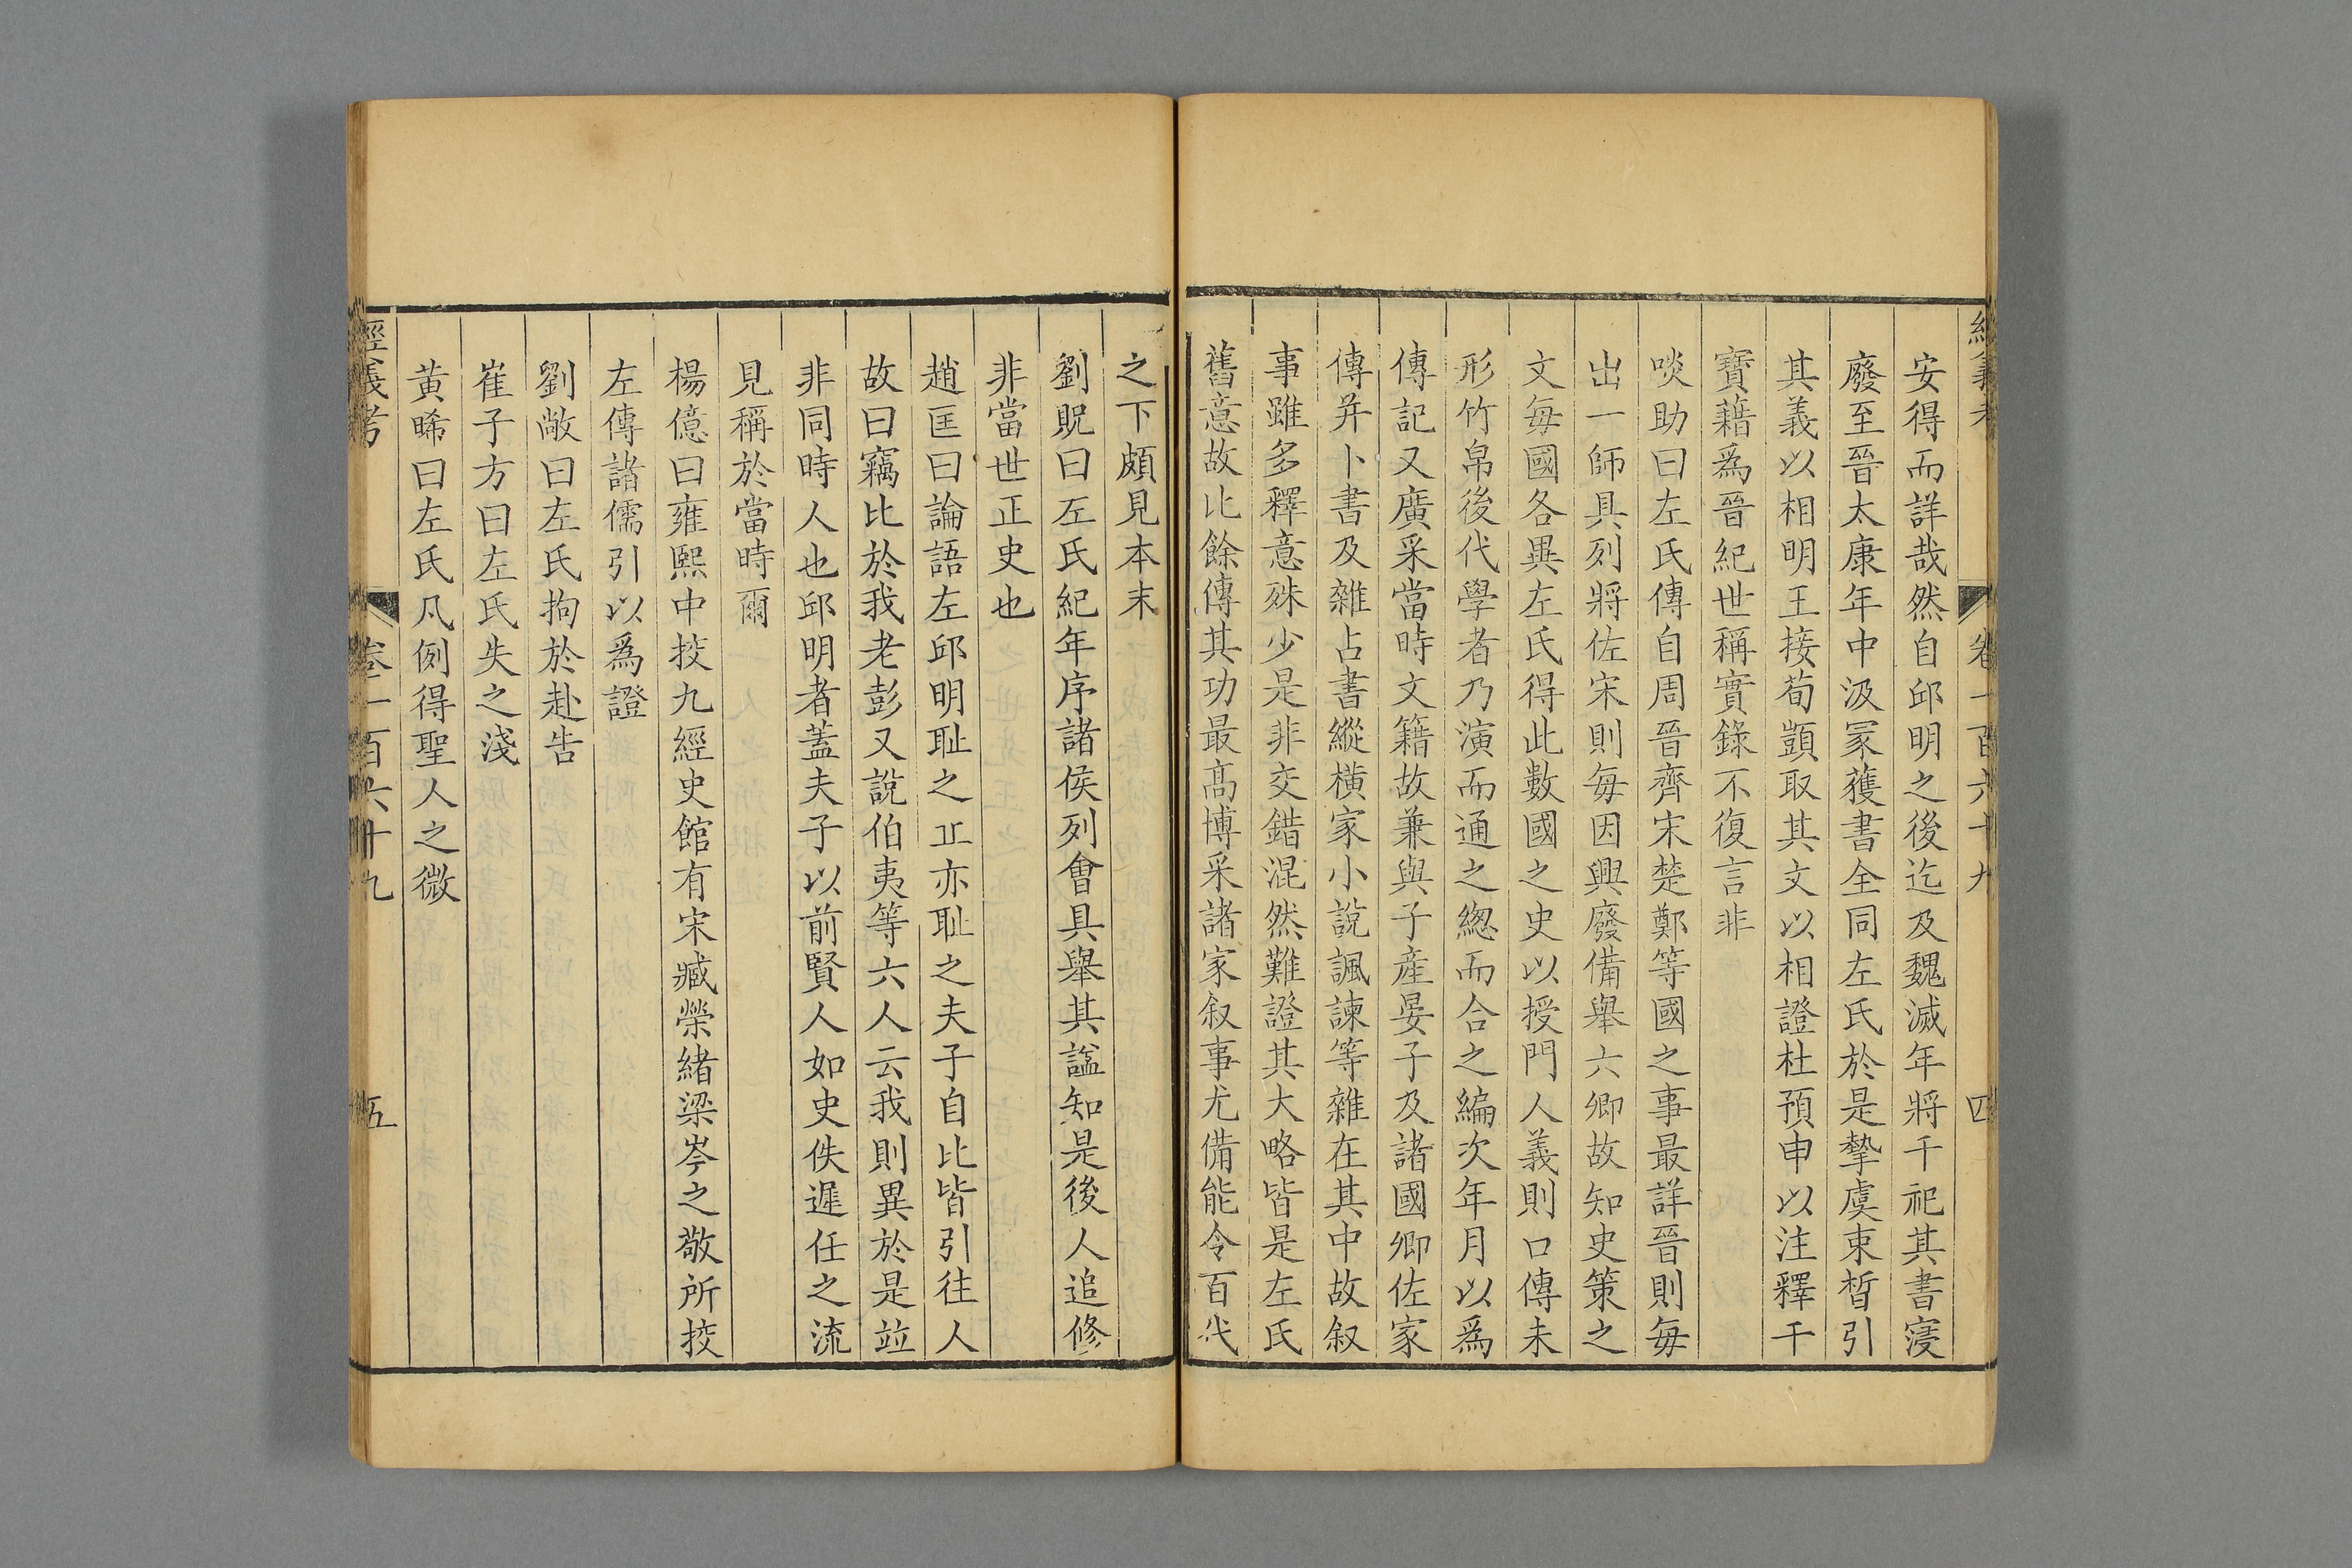 經義考 卷一百六十九 四
安得而詳哉然自邱明之後迄及魏滅年將千祀其書寖
廢至晉太康年中汲冡獲書全同左氏於是摯虞束晳引
其義以相明王接荀顗取其文以相證杜預申以注釋干
寶藉爲晉紀世稱實錄不復言非
啖助曰左氏傳自周晉齊宋楚鄭等國之事最詳晉則每
出一師具列將佐宋則每因興廢備舉六卿故知史策之
文每國各異左氏得此數國之史以授門人義則口傳未
形竹帛後代學者乃演而通之緫而合之編次年月以爲
傳記又廣采當時文籍故兼與子產晏子及諸國卿佐家
傳并卜書及雜占書縱橫家小說諷諫等雜在其中故叙
事雖多釋意殊少是非交錯混然難證其大略皆是左氏
舊意故比餘傳其功最高博采諸家叙事尤備能令百代
之下頗見本末
劉貺曰左氏紀年序諸侯列會具舉其謚知是後人追修
非當世正史也
趙匡曰論語左邱明耻之丘亦耻之夫子自比皆引往人
故曰竊比於我老彭又說伯夷等六人云我則異於是竝
非同時人也邱明者蓋夫子以前賢人如史佚遲任之流
見稱於當時爾
楊億曰雍熙中挍九經史館有宋臧榮緒梁岑之敬所挍
左傳諸儒引以爲證
劉敞曰左氏拘於赴告
崔子方曰左氏失之淺
黃晞曰左氏凡例得聖人之微
經義考 卷一百六十九 五